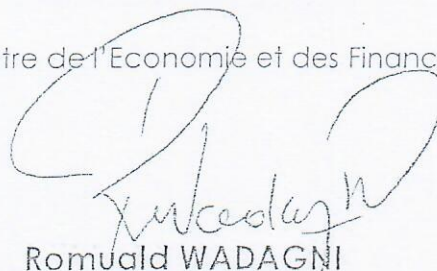 tre de l'Economie et des Financ
Romuald WADAGNI